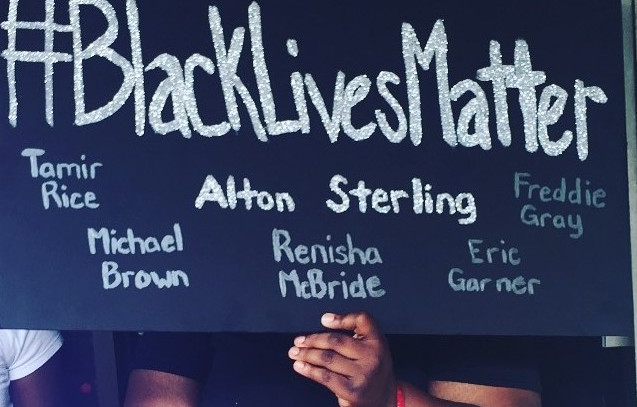 #BlackLivesMatter
Tamir
Rice
Alton Sterling
Freddie
Gray
Michael
Brown
Renisha
McBride
Eric
Garner